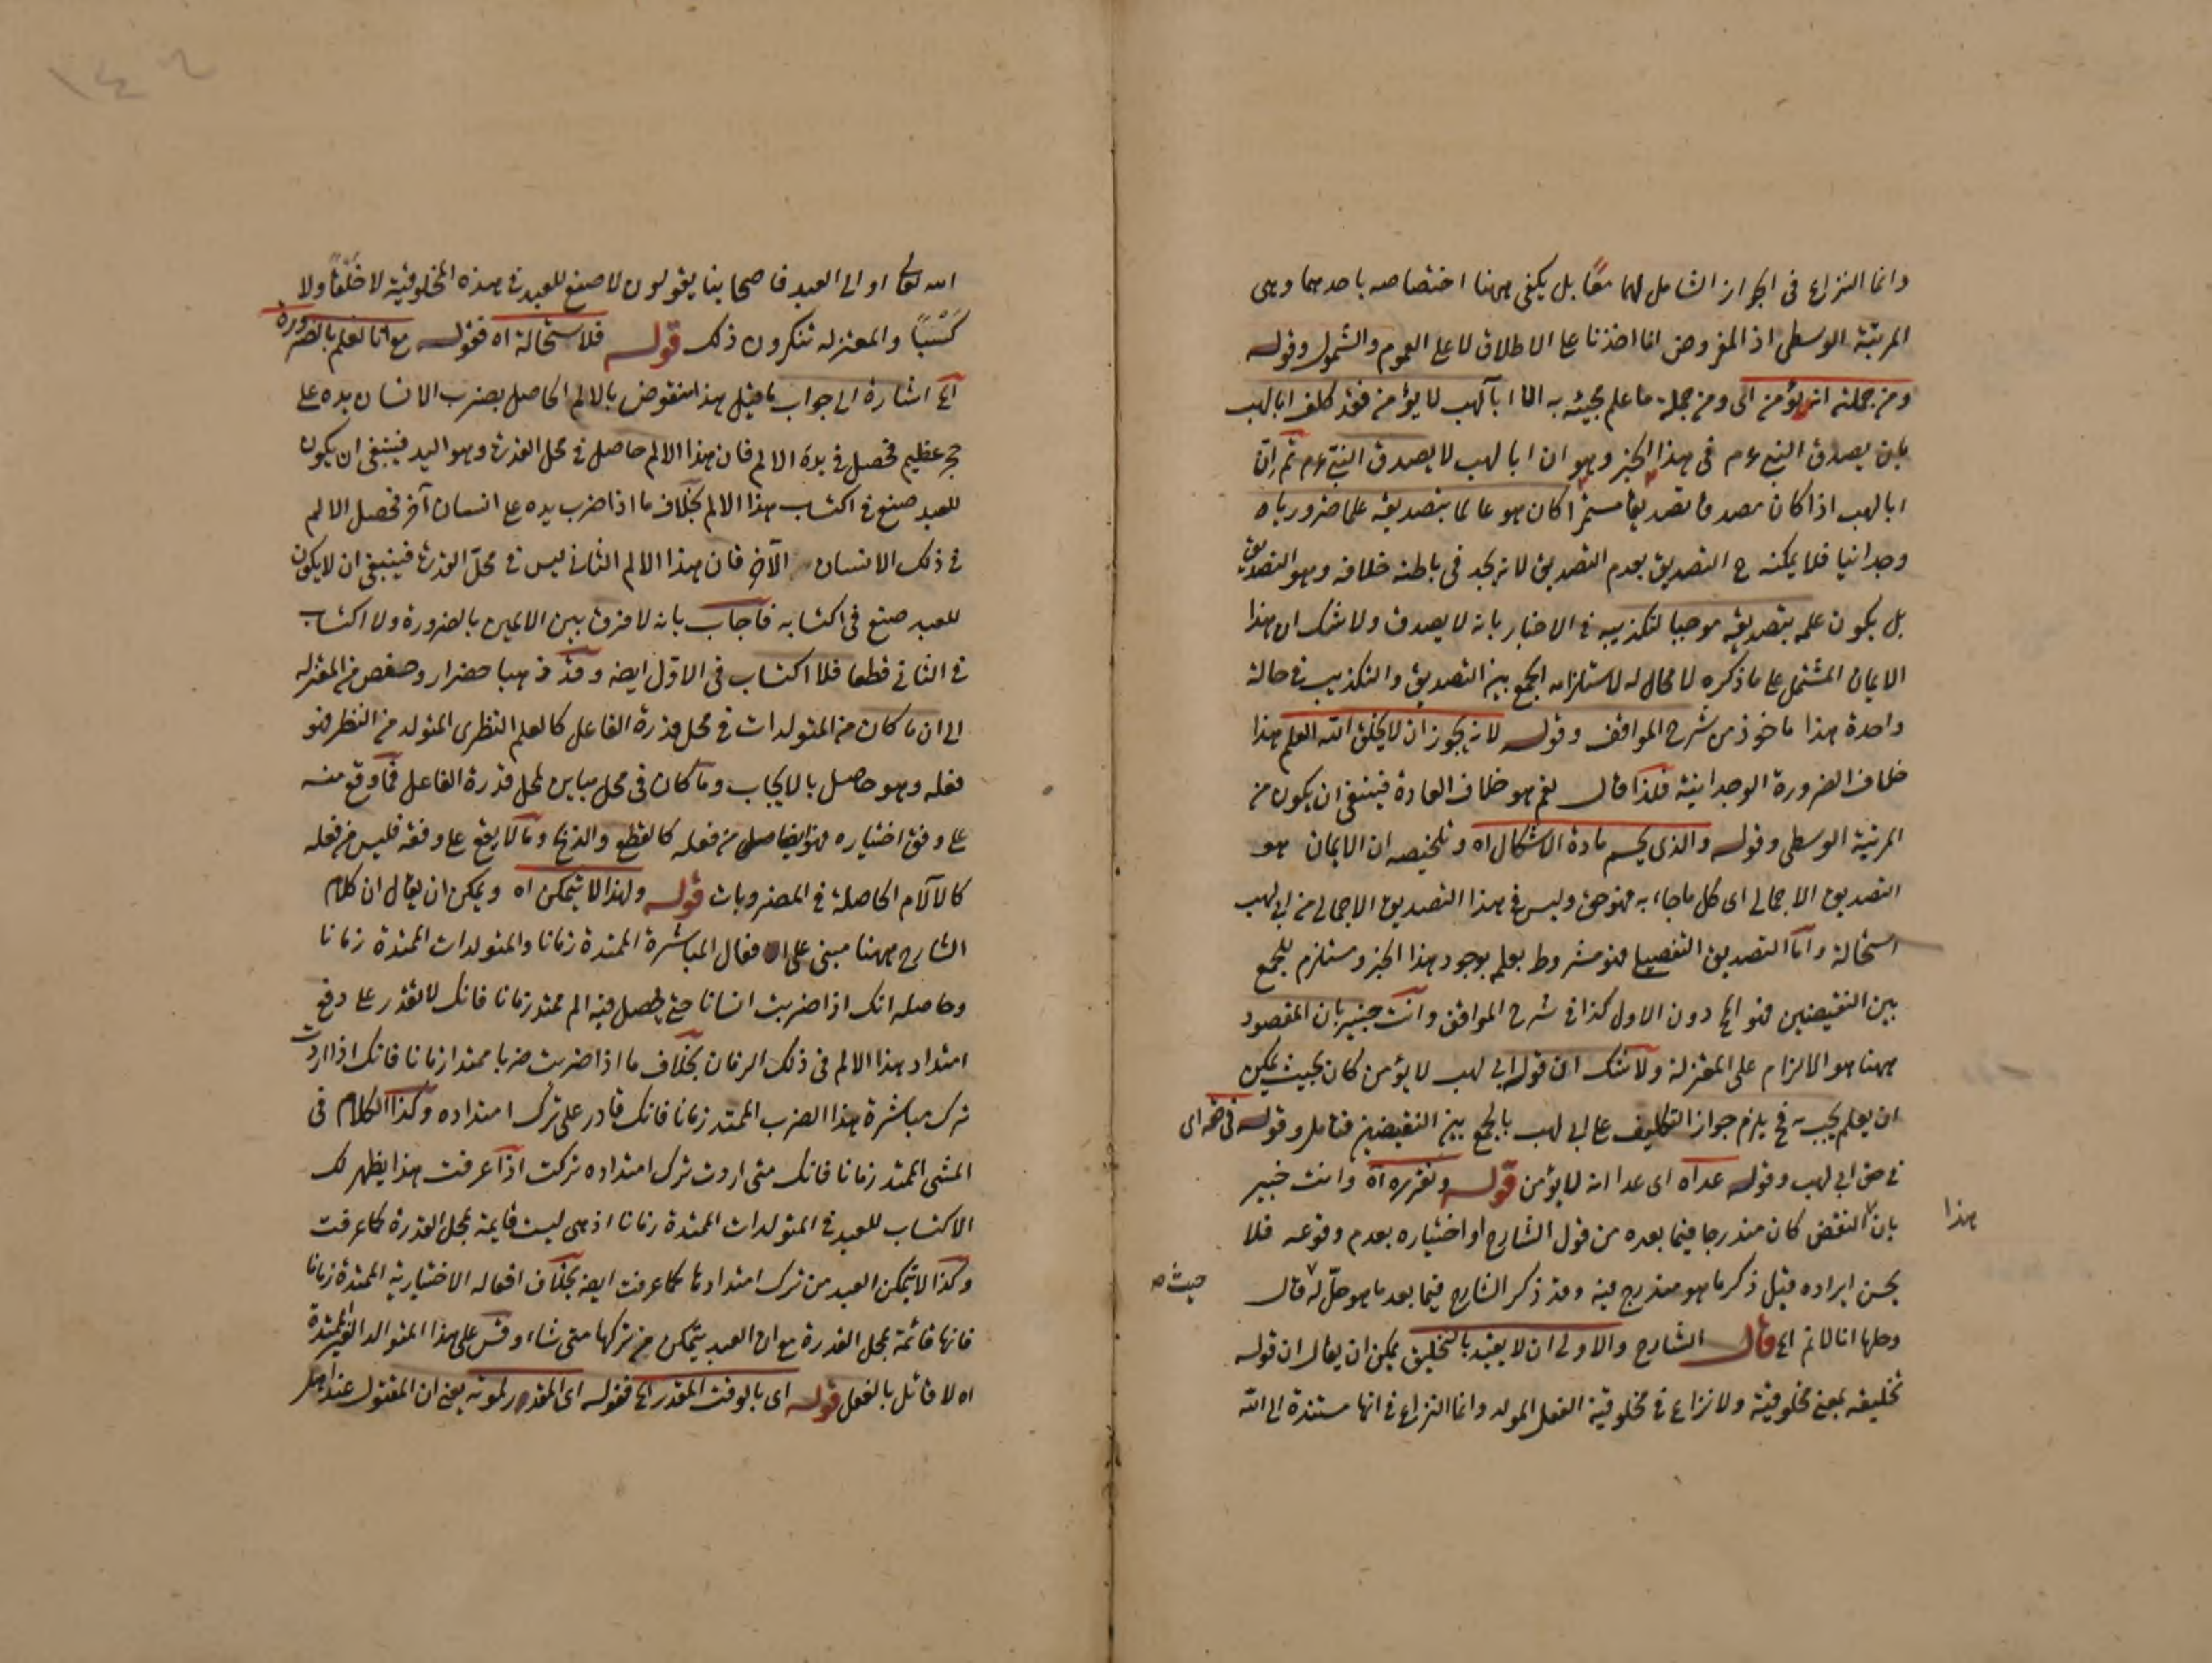 وانما النزاع فى الجواز الشامل لهما معًا بل يكفى ههنا اختصاصه باحدهما وهى
المرتبة الوسطى اذ المفروض انا اخذنا على الاطلاق لا على العموم والشمول وقوله
ومن جملته انه لا يؤمن الى ومن جملة ما علم مجيئه به انّ ابا لهب لا يؤمن فقد كلف ابا لهب
بان يصدق النبى عم فى هذا الخبر وهو ان ابا لهب لا يصدق النبى عم ثم ان
ابا لهب اذا كان مصدقا تصديقا مستمرا كان هو عالما بتصديقه علما ضروريا
وجدانيا فلا يمكنه ح التصديق بعدم التصديق لانه يجد فى باطنه خلافه وهو التصديق
بل يكون علمه بتصديقه موجبا لتكذيبه فى الاخبار بانه لا يصدق ولا شك ان هذا
الايمان المشتمل على ما ذكره لا محال له لاستلزامه الجمع بين التصديق والتكذيب فى حالة
واحدة هذا ماخوذ من شرح المواقف وقوله لانه يجوز ان لا يخلق الله العلم هذا
خلاف الضرورة الوجدانية فلذا قال نعم هو خلاف العادة فينبغى ان يكون من
المرتبة الوسطى وقوله والذى يحسم مادة الاشكال اه وتلخيصه ان الايمان هو
التصديق الاجمالى اى كل ما جاء به فهو حق وليس فى هذا التصديق الاجمالى من ابى لهب
استحالة وامّا التصديق التفصيلى فهو مشروط بعلم بوجود هذا الخبر ومستلزم للجمع
بين النقيضين فهو المح دون الاول كذا فى شرح المواقف وانت خبير بان المقصود
ههنا هو الالزام على المعتزلة ولا شك ان قوله ابى لهب لا يؤمن كان بحيث يمكن
ان يعلم بجيبه فح يلزم جواز التكليف على ابى لهب بالجمع بين النقيضين فتامل وقوله فى حقه اى
فى حق ابى لهب وقوله عداه اى عدا انه لا يؤمن قوله وتقريره اه وانت خبير
بان النقض كان مندرجا فيما بعده من قول الشارح او اختياره بعدم وقوعه فلا
هذا
يحسن ايراده قبل ذكر ما هو مندرج فيه وقد ذكر الشارح فيما بعد ما هو حلّ له قال
حيث صه
وحلها انا لا نم الخ قال الشارح والاولى ان لا يقيد بالتخليق يمكن ان يقال ان قوله
تخليقه بمعنى مخلوقيته ولا نزاع فى مخلوقية الفعل المولد وانما النزاع فى انها مستندة الى الله
١٤٢
الله تعالى او الى العبد فاصحابنا يقولون لا صنع للعبد فى هذه المخلوقية لا خلقًا ولا
كسبًا والمعتزلة تنكرون ذلك قوله فلاستحالة اه فقوله مع انا نعلم بالضرورة
الخ اشارة الى جواب ما قيل هذا منقوض بالالم الحاصل بضرب الانسان يده على
حجر عظيم فحصل فى يده الالم فان هذا الالم حاصل فى محل القدرة وهو اليد فينبغى ان يكون
للعبد صنع فى اكتساب هذا الالم بخلاف ما اذا ضرب يده على انسان آخر فحصل الالم
فى ذلك الانسان الآخر فان هذا الالم الثانى ليس فى محلّ القدرة فينبغى ان لا يكون
للعبد صنع فى اكتسابه فاجاب بانه لا فرق بين الالمين بالضرورة ولا اكتساب
فى الثانى قطعا فلا اكتساب فى الاوّل ايضه وقد ذهبا حضرار وحفص من المعتزلة
الى ان ما كان من المتولدات فى محل قدرة الفاعل كالعلم النظرى المتولد من النظر فهو
فعله وهو حاصل بالايجاب وما كان فى محل مباين لمحل قدرة الفاعل فما وقع منه
على وفق اختياره فهو ايضا حاصل من فعله كالقطع والذبح وما لا يقع على وفقه فليس من فعله
كالآلام الحاصلة فى المضروبات قوله ولهذا لا يتمكن اه ويمكن ان يقال ان كلام
الشارح ههنا مبنى على ا فعال المباشرة الممتدة زمانا والمتولدات الممتدة زمانا
وحاصله انك اذا ضربت انسانا حتى يحصل فيه الم ممتد زمانا فانك لا تقدر على دفع
امتداد هذا الالم فى ذلك الزمان بخلاف ما اذا ضربت ضربا ممتدا زمانا فانك اذا اردت
ترك مباشرة هذا الضرب الممتد زمانا فانك قادر على ترك امتداده وكذا الكلام فى
المشى الممتد زمانا فانك متى اردت ترك امتداده تركت اذا عرفت هذا يظهر لك
الاكتساب للعبد فى المتولدات الممتدة زمانا اذ هى ليست قايمة بمحل القدرة كما عرفت
وكذا لا يتمكن العبد من ترك امتدادها كما عرفت ايضه بخلاف افعاله الاختيارية الممتدة زمانا
فانها قائمة بمحل القدرة مع ان العبد يتمكن من تركها متى شاء وقس على هذا المتوالد الغير الممتدة
اه لا قائل بالفعل قوله اى بالوقت المقدر الخ فقوله اى المقدر لموته يعنى ان المقتول عند اجل